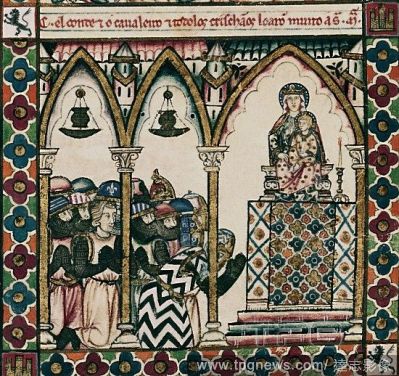 C· el conde ⁊ o caualeiro ⁊ todolos crischãos loarõ muito a S. M.
www.tpgnews.com／達志影像